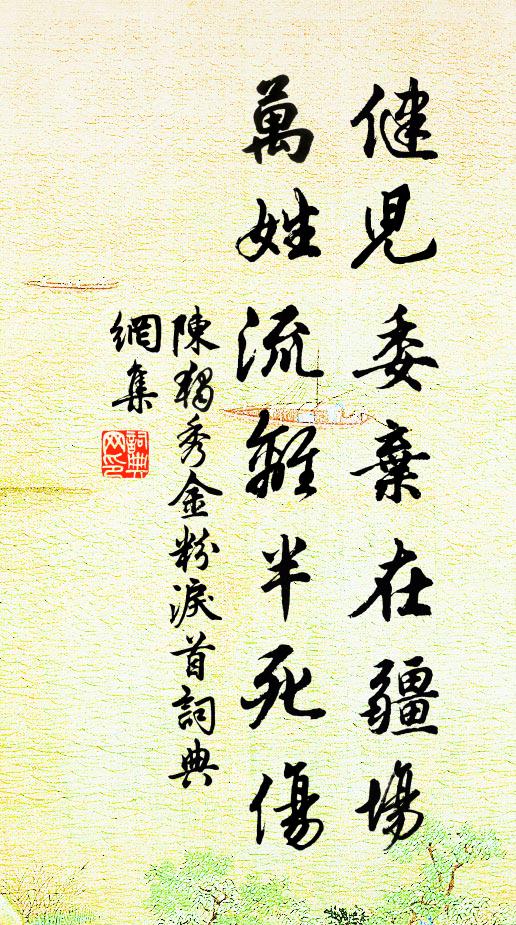 健児委棄在疆場
萬姓流離半死傷
陳獨秀金粉淚首詞典
網集
詞典
网印